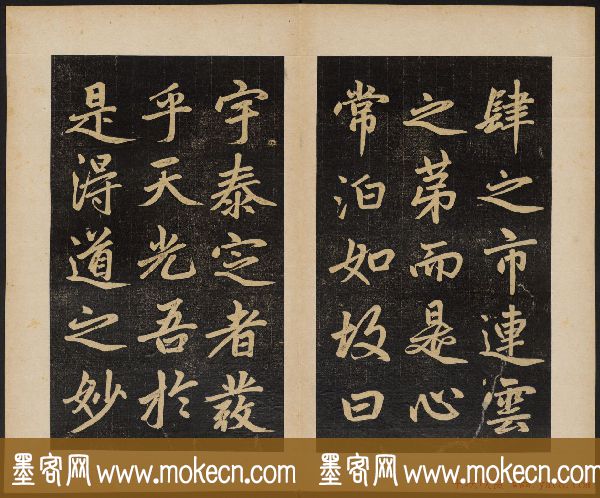 肆之市連雲
之苐而是心
常泊如故曰
宇泰定者發
乎天光吾於
是淂道之妙
墨客网www.mokecn.com 墨客网www.mokecn.com